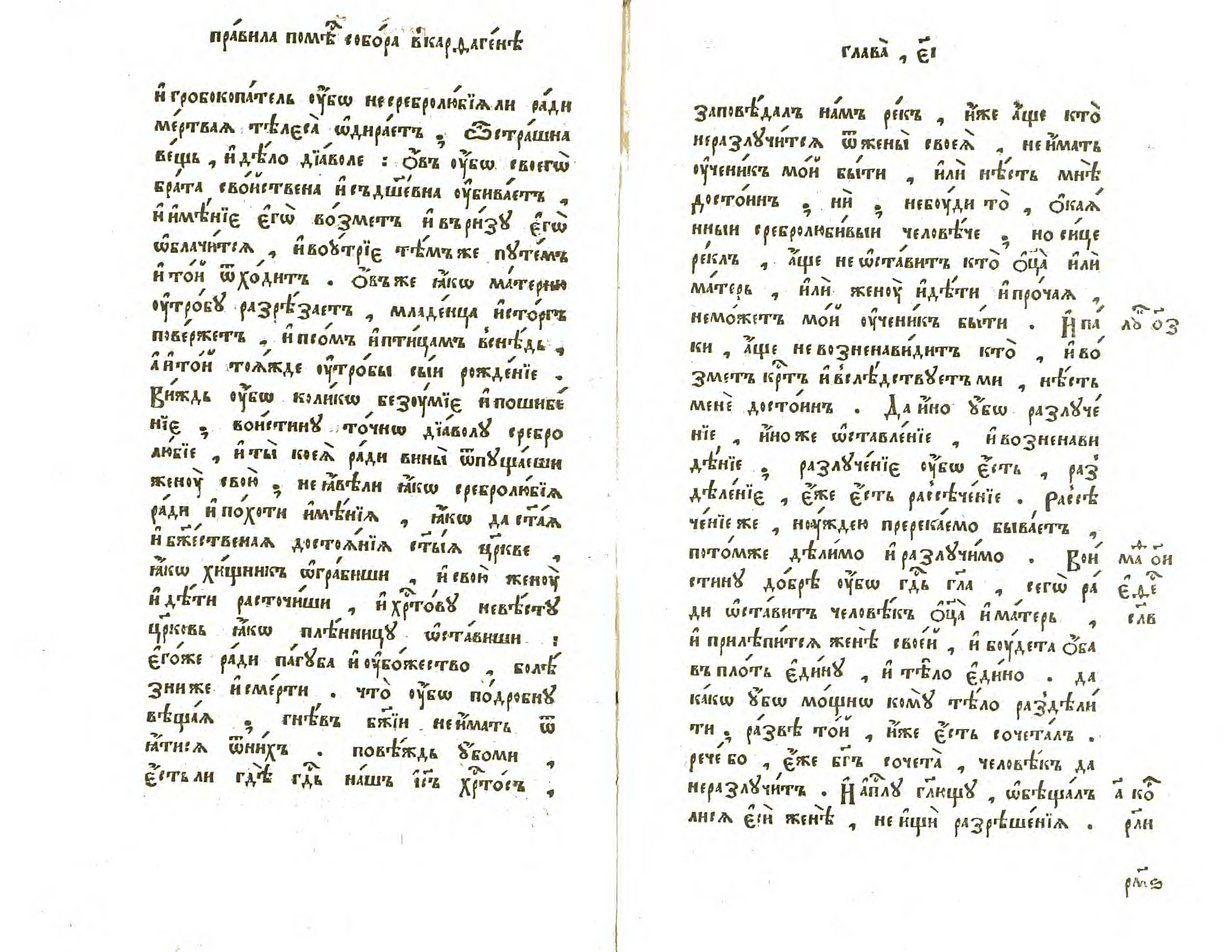 пра́вила помѣ́с собо́ра в̾карѳаге́нѣ
и҆гробокопа́тель ᲂу҆́бѡ несребролю́бїѧли ра́ди
ме́ртваѧ тѣлеса̀ ѡ҆дира́етъ ; Ѽстра́шна
ве́щь , и҆дѣ́ло дїа́воле : ѻ҆́въ ᲂу҆́бѡ своегѡ̀
бра́та сво́йствена и҆съдш҃е́вна ᲂу҆бива́етъ ,
и҆и҆мѣ́нїе є҆гѡ̀ во́зметъ и҆въри́зꙋ є҆гѡ̀
ѡ҆блачи́тсѧ , и҆воу́трїе тѣ́мъже пꙋте́мъ
и҆то́й ѿхо́дитъ . ѻ҆́въже ꙗ҆́кѡ ма́терню
ᲂу҆тро́бꙋ разрѣ́заетъ , младе́нца и҆сто́ргъ
пове́ржетъ , и҆псо́мъ и҆пти́цамъ в̾снѣ́дь ,
а҆и҆то́й тоѧ́жде ᲂу҆тро́бы сы́и рожде́нїе .
Ви́ждь ᲂу҆́бѡ коли́кѡ безоу́мїе и҆пошибе́
нїе ; вои́стинꙋ то́чнѡ дїа́волꙋ сребро
лю́бїе , и҆ты̀ коеѧ̀ ра́ди вины̀ ѿпꙋща́еши
женоу̀ свою̀ ; неꙗ҆́вѣли ꙗ҆́кѡ сребролю́бїѧ
ра́ди и҆по́хоти и҆мѣ́нїѧ , ꙗ҆́кѡ да ст҃а́ѧ
и҆бж҃е́ственаѧ достоѧ́нїѧ ст҃ы́ѧ цр҃кве ,
ꙗ҆́кѡ хи́щникъ ѡ҆гра́биши , и҆свою̀ женоу̀
и҆дѣ́ти расточи́ши , и҆хрⷭ҇то́вꙋ невѣ́стꙋ
цр҃ковь ꙗ҆́кѡ плѣ́нницꙋ ѡ҆ста́виши :
є҆гѡ́же ра́ди па́гꙋба и҆ᲂу҆бо́жество , болѣ̀
зниже и҆сме́рти . что̀ ᲂу҆́бѡ по́дробнꙋ
вѣща́ѧ ; гнѣ́въ бж҃їи неи́мать ѿ
ꙗ҆́тисѧ ѿни́хъ . повѣ́ждь ᲂу҆́боми ,
є҆́стьли гдѣ̀ гдⷭ҇ь на́шъ і҆и҃съ хрⷭ҇то́съ ,
глава̀ , є҃і
заповѣ́далъ на́мъ ре́къ , и҆́же а҆́ще кто̀
неразлꙋчи́тсѧ ѿжены̀ своеѧ̀ , неи́мать
ᲂу҆чени́къ мо́й бы́ти , и҆лѝ нѣ́сть мнѣ̀
досто́инъ ; нѝ ; небоу́ди то̀ , ѻ҆каѧ́
нныи сребролюби́выи человѣ́че ; но си́це
ре́клъ , а҆́ще неѡ҆ста́витъ кто̀ ѻ҆ц҃а̀ и҆лѝ
ма́терь , и҆лѝ женоу̀ и҆дѣ́ти и҆про́чаѧ ,
немо́жетъ мо́й ᲂу҆чени́къ бы́ти . И҆па́
ки , а҆́ще невозненави́дитъ кто̀ , и҆во́
зметъ крⷭ҇тъ и҆в̾слѣ́дствꙋетъми , нѣ́сть
менѐ досто́инъ . Да и҆́но ᲂу҆́бѡ разлꙋче́
нїе , и҆но́же ѡ҆ставле́нїе , и҆возненави
дѣ́нїе ; разлꙋче́нїе ᲂу҆́бѡ є҆́сть , раз̾
дѣле́нїе , є҆́же є҆́сть разсѣче́нїе . Разсѣ
че́нїеже , ноу́ждею пререка́емо быва́етъ ,
пото́мже дѣли́мо и҆разлꙋчи́мо . Вои́
стинꙋ до́брѣ ᲂу҆́бѡ гдⷭ҇ь гл҃а , сегѡ̀ ра́
ди ѡ҆ста́витъ человѣ́къ ѻ҆ц҃а̀ и҆ма́терь ,
и҆прилѣпи́тсѧ женѣ̀ свое́й , и҆боу́дета ѻ҆́ба
въпло́ть є҆ди́нꙋ , и҆тѣ́ло є҆ди́но . да
ка́кѡ ᲂу҆́бѡ мо́щнѡ комꙋ̀ тѣ́ло раздѣли́
ти ; ра́звѣ то́й , и҆́же є҆́сть сочета́лъ .
рече́ бо , є҆́же бг҃ъ сочета̀ , человѣ́къ да
неразлꙋчи́тъ . И҆ а҆пⷭ҇лꙋ гл҃ющꙋ , ѡ҆бѣща́лъ
лисѧ є҆сѝ женѣ̀ , неищѝ разрѣше́нїѧ .
лꙋ ѻ҃з
маⷴ ѻ҃и
є҆фе
сл҃в
а҃ ко
рл҃и
рм҃ѕ